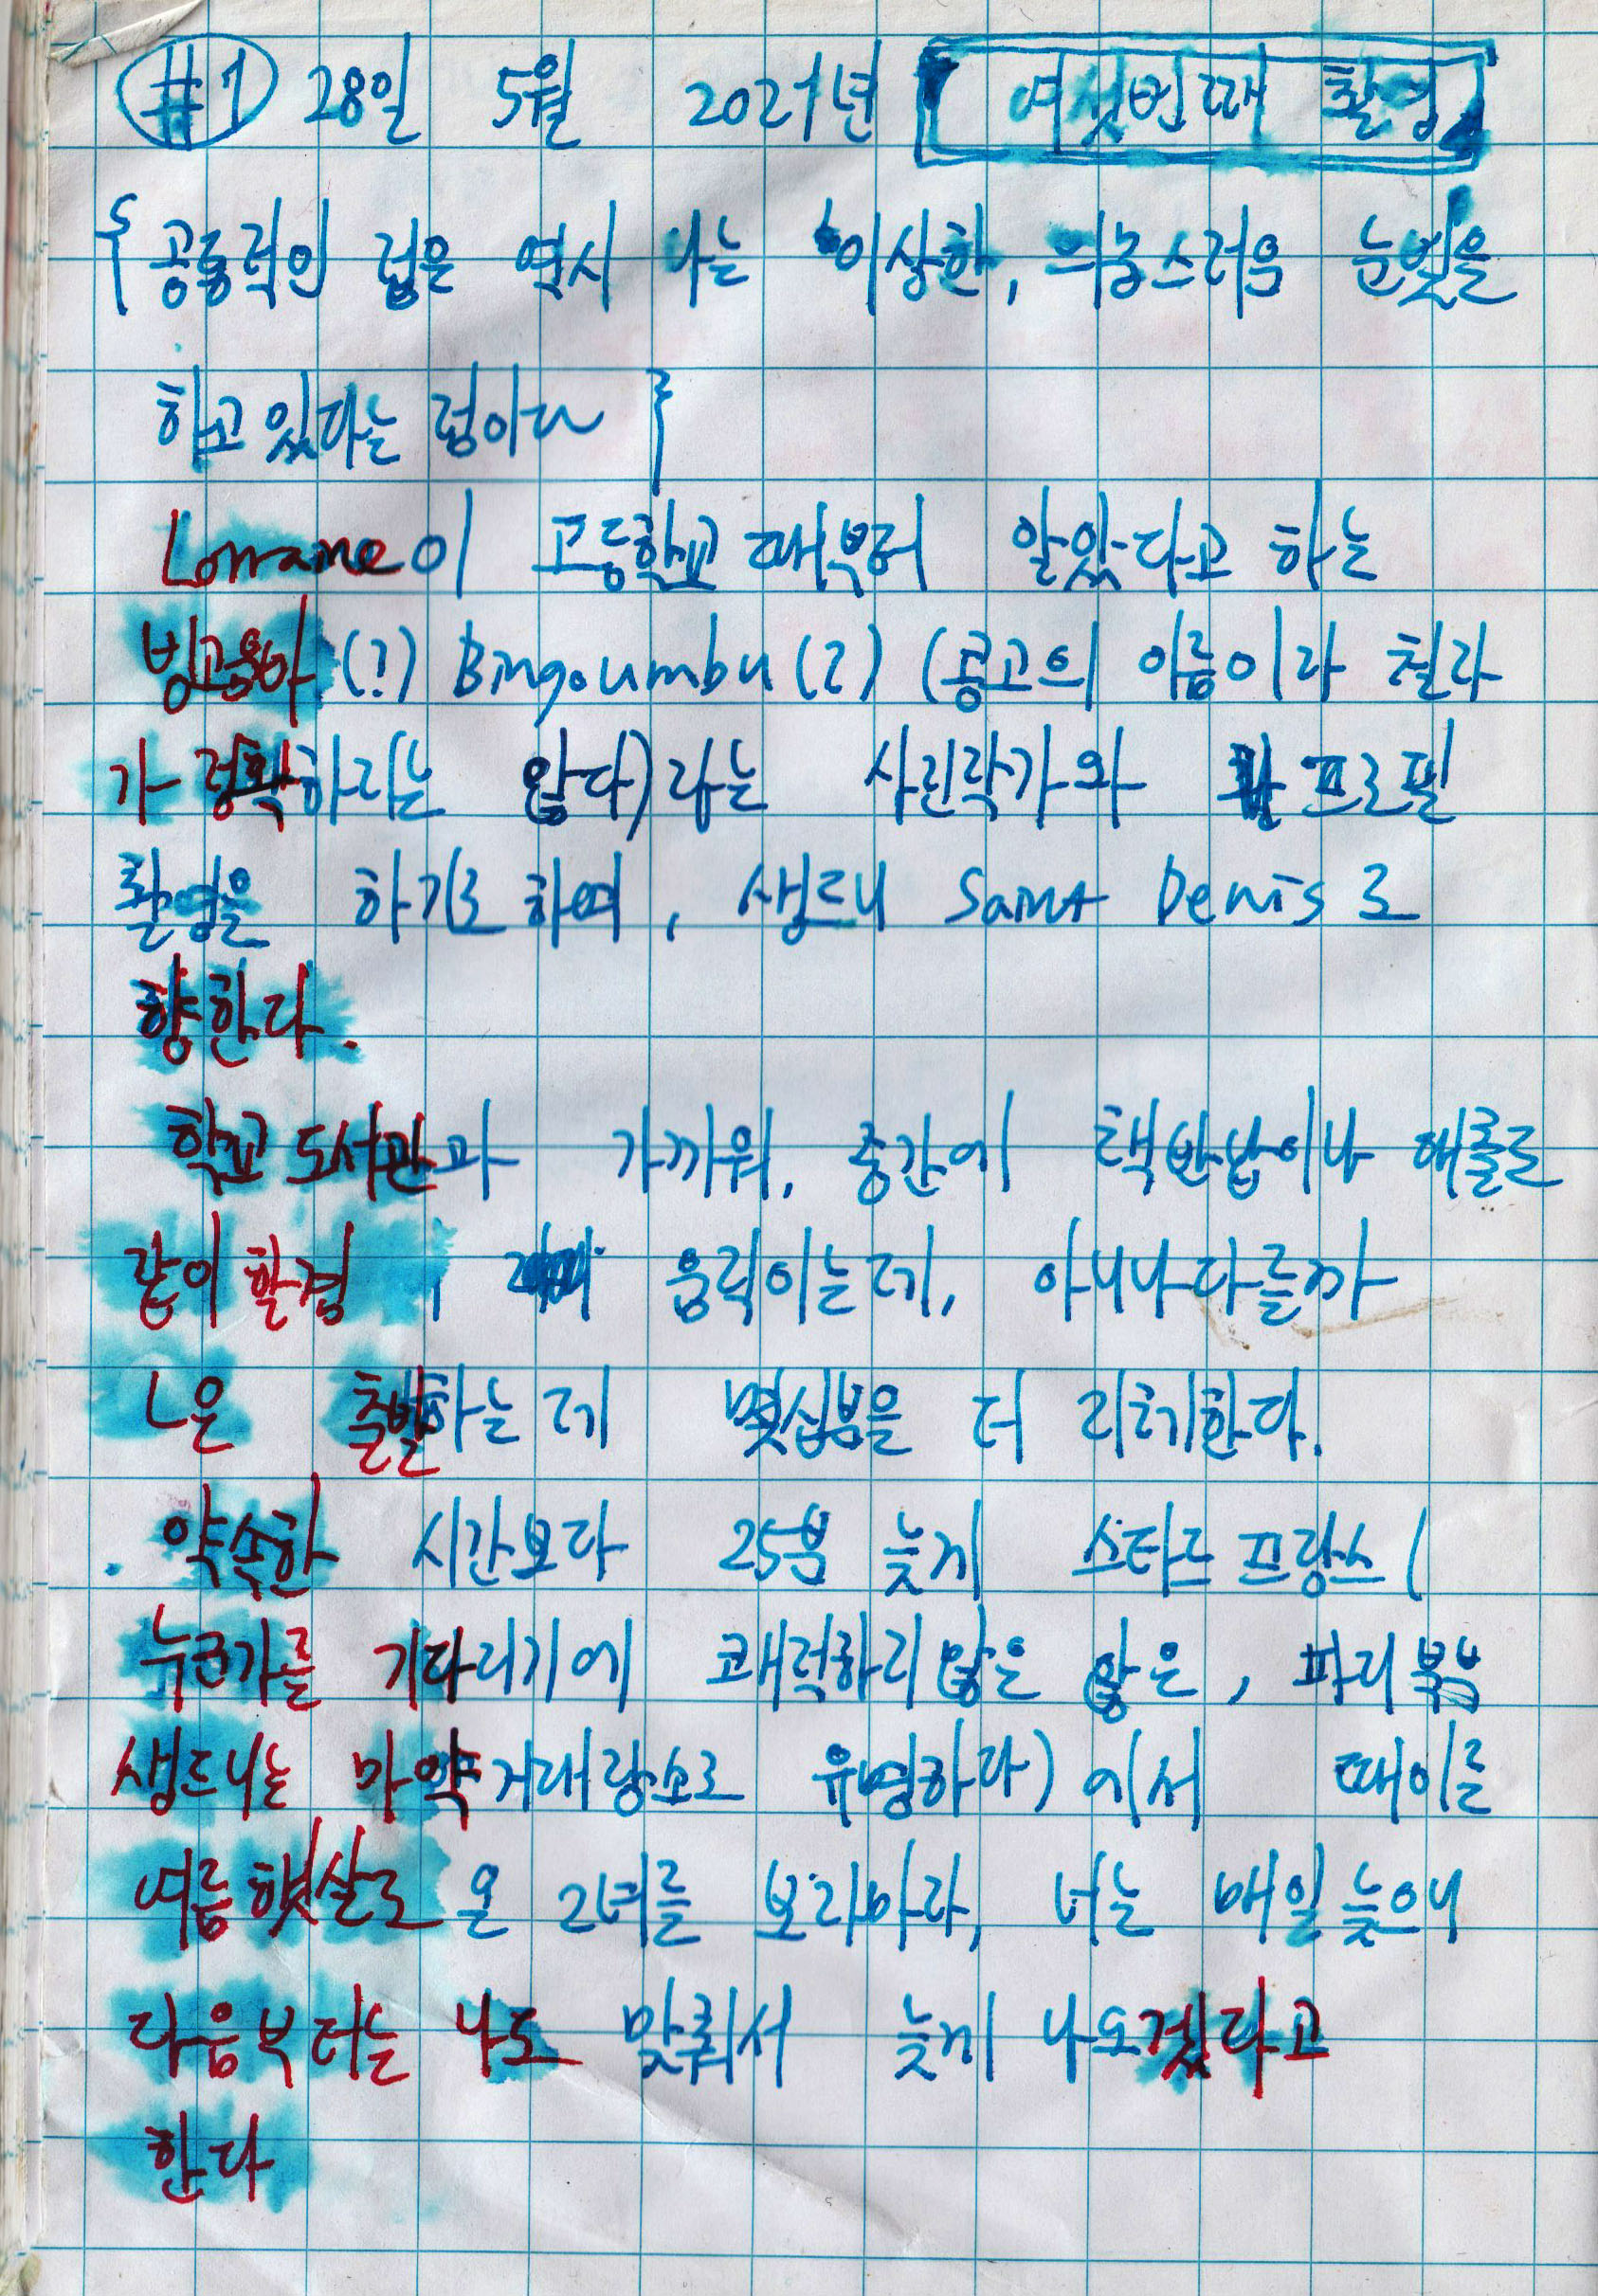 #1 28일 5월 2021년 여섯번째 촬영
{ 공통적인 점은 역시 나는 이상한, 의뭉스러운 눈빛을
하고있다는 점이다 }
Lorraine이 고등학교때부터 알았다고 하는
빙고움바 (?) Bingoumbu (?) (콩고의 이름이라 철자
가 정확하지는 않다)라는 사진작가와 프로필
촬영을 하기로 하여, 생드니 Saint Denis로
향한다.
학교 도서관과 가까워, 중간에 택
같이 움직이는데, 아니나다를까
L은 출발하는데 몇십분을 더 지체한다.
약속한 시간보다 25분 늦게 스타드프랑스 (
누군가를 기다리기에 쾌적하지않은 않은, 파리북부
생드니는 마약거래장소로 유명하다)에서 때이를
여름햇살로 온 그녀를 보자마자, 너는 매일늦으니
다음부터는 나도 맞춰서 늦게 나오겠다고
한다